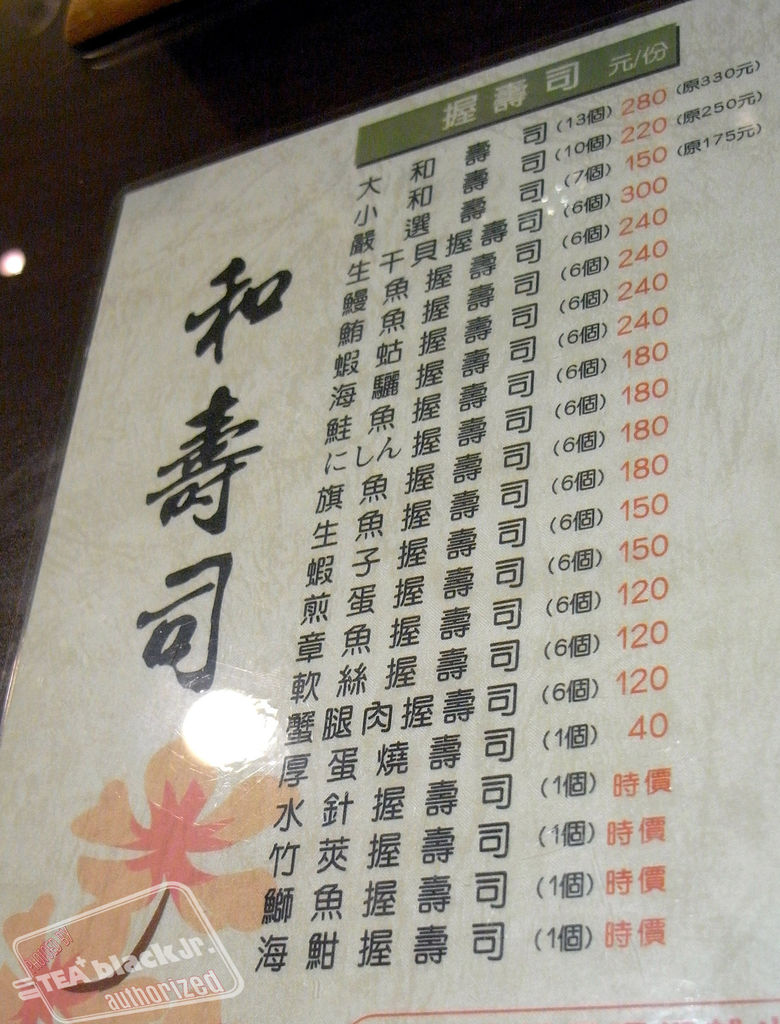 握壽司 元/份
大和壽司 (13個) 280 (原330元)
小和壽司 (10個) 220 (原250元)
嚴選壽司 (7個) 150 (原175元)
生干貝握壽司 (6個) 300
鰻魚握壽司 (6個) 240
鮪魚握壽司 (6個) 240
蝦蛄握壽司 (6個) 240
海鱺握壽司 (6個) 240
鮭魚握壽司 (6個) 180
にしん握壽司 (6個) 180
旗魚握壽司 (6個) 180
生魚握壽司 (6個) 180
蝦子握壽司 (6個) 150
煎蛋握壽司 (6個) 150
章魚握壽司 (6個) 120
軟絲握壽司 (6個) 120
蟹腿肉握壽司 (6個) 120
厚蛋燒壽司 (1個) 40
水針握壽司 (1個) 時價
竹莢握壽司 (1個) 時價
鰤魚握壽司 (1個) 時價
海魽握壽司 (1個) 時價
和壽司
TEA+blackJr.
authorized